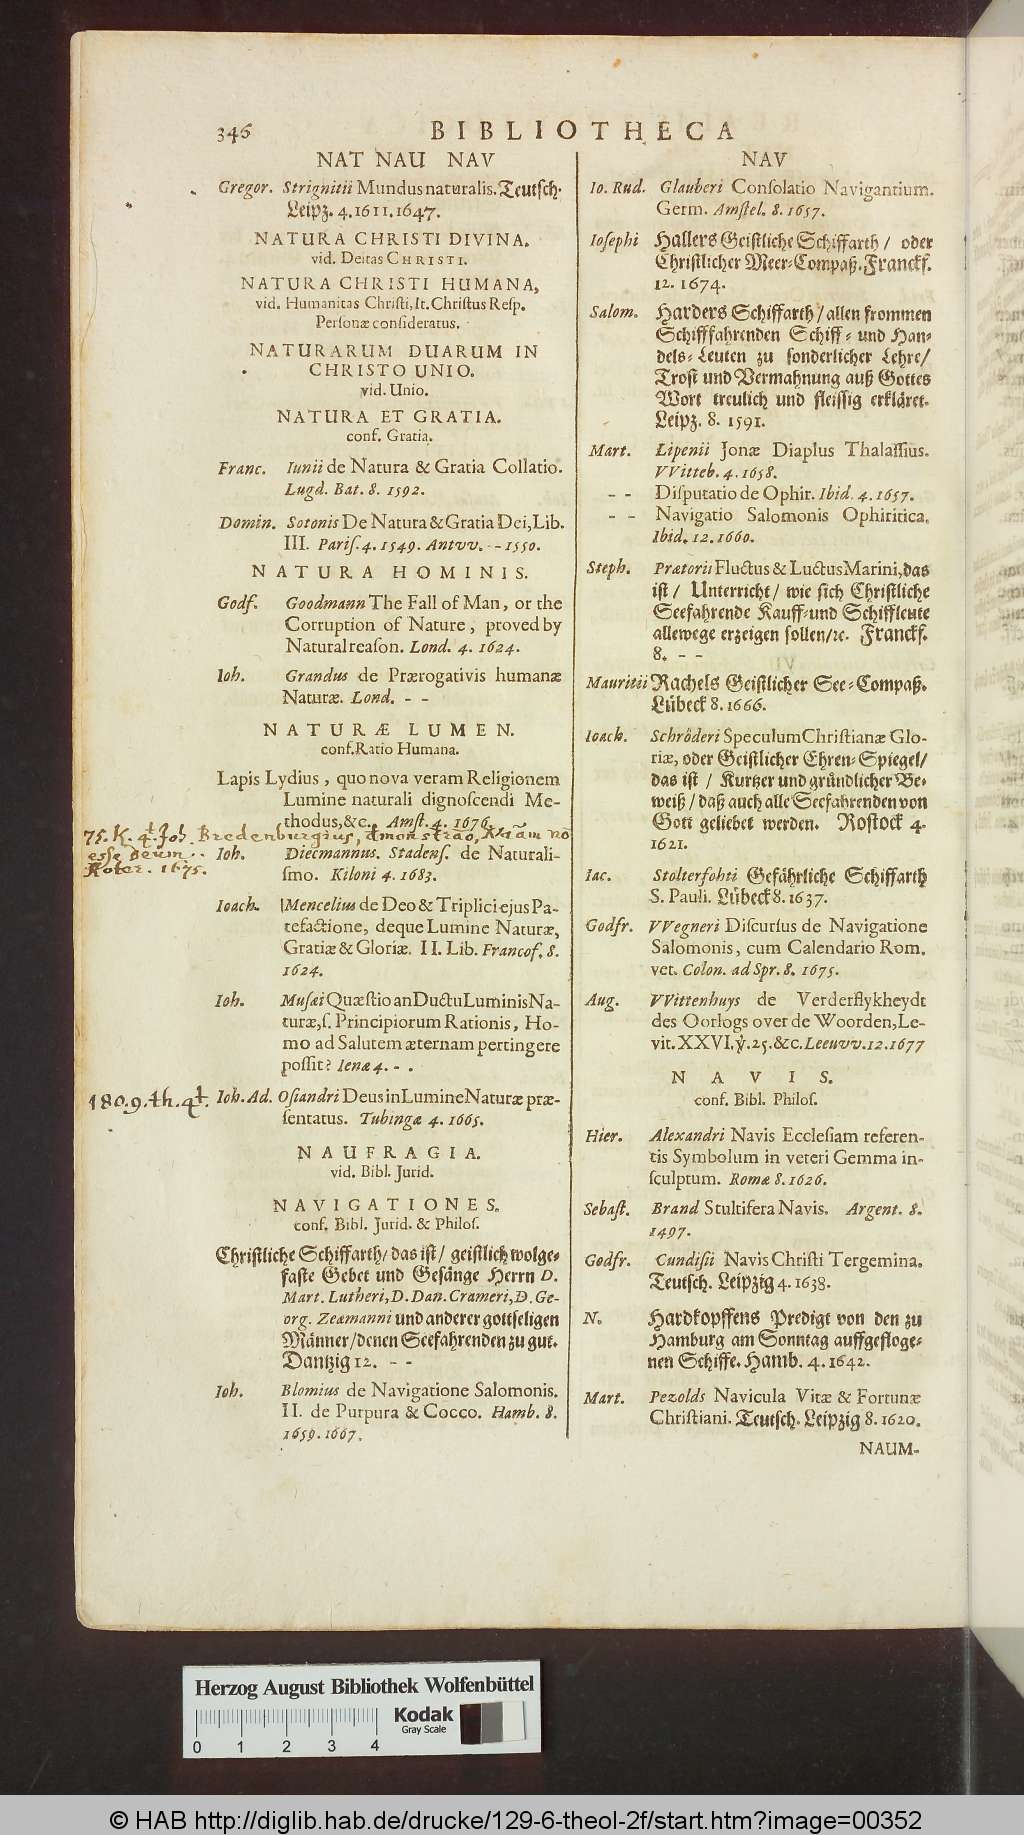 346
BIBLIOTHECA
NAT NAU NAV
Gregor. Strignitii Mundus naturalis. Teutsch.
Leipz. 4. 1611. 1647.
NATURA CHRISTI DIVINA.
vid. Deitas CHRISTI.
NATURA CHRISTI HUMANA,
vid. Humanitas Christi, It. Christus Resp.
Personæ consideratus.
NATURARUM DUARUM IN
CHRISTO UNIO.
vid. Unio.
NATURA ET GRATIA.
conf. Gratia.
Franc. Iunii de Natura & Gratia Collatio.
Lugd. Bat. 8. 1592.
Domin. Sotonis De Natura & Gratia Dei, Lib.
III. Paris. 4. 1549. Antvv. - - 1550.
NATURA HOMINIS.
Godf. Goodmann The Fall of Man, or the
Corruption of Nature, proved by
Natural reason. Lond. 4. 1624.
Ioh. Grandus de Prærogativis humanæ
Naturæ. Lond. - -
NATURÆ LUMEN.
conf. Ratio Humana.
Lapis Lydius, quo nova veram Religionem
Lumine naturali dignoscendi Me-
thodus, &c. Amst. 4. 1676.
75. K. 4t. Joh. Bredenburgius, no
esse Deum..
Roter. 1675.
Ioh. Diecmannus. Stadens. de Naturali-
smo. Kiloni 4. 1683.
Ioach. Mencelius de Deo & Triplici ejus Pa-
tefactione, deque Lumine Naturæ,
Gratiæ & Gloriæ. II. Lib. Francof. 8.
1624.
Ioh. Musæi Quæstio an Ductu Luminis Na-
turæ, s. Principiorum Rationis, Ho-
mo ad Salutem æternam pertingere
possit? Ienæ 4. - .
180. 9. th. 4t.
Ioh. Ad. Osiandri Deus in Lumine Naturæ præ-
sentatus. Tubingæ 4. 1665.
NAUFRAGIA.
vid. Bibl. Jurid.
NAVIGATIONES.
conf. Bibl. Jurid. & Philos.
Christliche Schiffarth / das ist / geistlich wolge-
faste Gebet und Gesänge Herrn D.
Mart. Lutheri, D. Dan. Crameri, D. Ge-
org. Zeamanni und anderer gottseligen
Männer / denen Seefahrenden zu gut.
Dantzig 12. - -
Ioh. Blomius de Navigatione Salomonis.
II. de Purpura & Cocco. Hamb. 8.
1659. 1667.
NAV
Io. Rud. Glauberi Consolatio Navigantium.
Germ. Amstel. 8. 1657.
Iosephi Hallers Geistliche Schiffarth / oder
Christlicher Meer-Compaß. Franckf.
12. 1674.
Salom. Harders Schiffarth / allen frommen
Schifffahrenden Schiff- und Han-
dels-Leuten zu sonderlicher Lehre /
Trost und Vermahnung auß Gottes
Wort treulich und fleissig erkläret.
Leipz. 8. 1591.
Mart. Lipenii Jonæ Diaplus Thalassius.
VVitteb. 4. 1658.
- - Disputatio de Ophir. Ibid. 4. 1657.
- - Navigatio Salomonis Ophiritica.
Ibid. 12. 1660.
Steph. Prætorii Fluctus & Luctus Marini, das
ist / Unterricht / wie sich Christliche
Seefahrende Kauff- und Schiffleute
allewege erzeigen sollen / ꝛc. Franckf.
8. - -
Mauritii Rachels Geistlicher See-Compaß.
Lübeck 8. 1666.
Ioach. Schröderi Speculum Christianæ Glo-
riæ, oder Geistlicher Ehren-Spiegel /
das ist / Kurtzer und gründlicher Be-
weiß / daß auch alle Seefahrenden von
Gott geliebet werden. Rostock 4.
1621.
Iac. Stolterfohti Gefährliche Schiffarth
S. Pauli. Lübeck 8. 1637.
Godfr. VVegneri Discursus de Navigatione
Salomonis, cum Calendario Rom.
vet. Colon. ad Spr. 8. 1675.
Aug. VVittenhuys de Verderflykheydt
des Oorlogs over de Woorden, Le-
vit. XXVI. ꝟ. 25. &c. Leeuvv. 12. 1677
NAVIS.
conf. Bibl. Philos.
Hier. Alexandri Navis Ecclesiam referen-
tis Symbolum in veteri Gemma in-
sculptum. Romæ 8. 1626.
Sebast. Brand Stultifera Navis. Argent. 8.
1497.
Godfr. Cundisii Navis Christi Tergemina.
Teutsch. Leipzig 4. 1638.
N. Hardkopffens Predigt von den zu
Hamburg am Sonntag auffgefloge-
nen Schiffe. Hamb. 4. 1642.
Mart. Pezolds Navicula Vitæ & Fortunæ
Christiani. Teutsch. Leipzig 8. 1620.
NAUM-
Herzog August Bibliothek Wolfenbüttel
Kodak
Gray Scale
0 1 2 3 4
© HAB http://diglib.hab.de/drucke/129-6-theol-2f/start.htm?image=00352